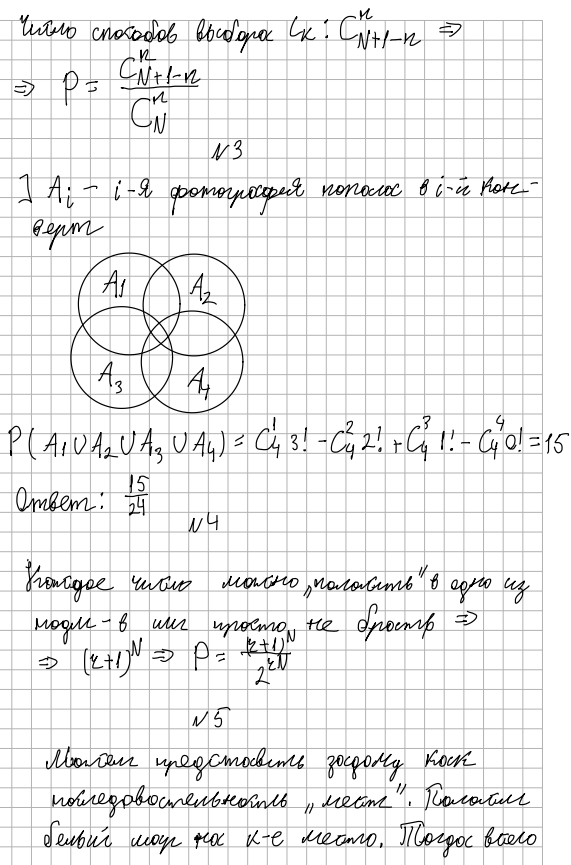 Число способов выбора C_k: C_{N+1-n}^n ⇒
⇒ P = \frac{C_{N+1-n}^n}{C_N^n}
№3
] A_i – i-я фотография попала в i-й кон-
верт
A_1 A_2
A_3 A_4
P(A_1 ∪ A_2 ∪ A_3 ∪ A_4) = C_4^1 3! - C_4^2 2! + C_4^3 1! - C_4^4 0! = 15
Ответ: \frac{15}{24}
№4
Каждое число можно „положить" в одно из
подм-в или просто не брать ⇒
⇒ (r+1)^N ⇒ P = \frac{(r+1)^N}{2^{rN}}
№5
Можем представить задачу как
последовательность „мест". Положим
белый шар на k-е место. Тогда всего